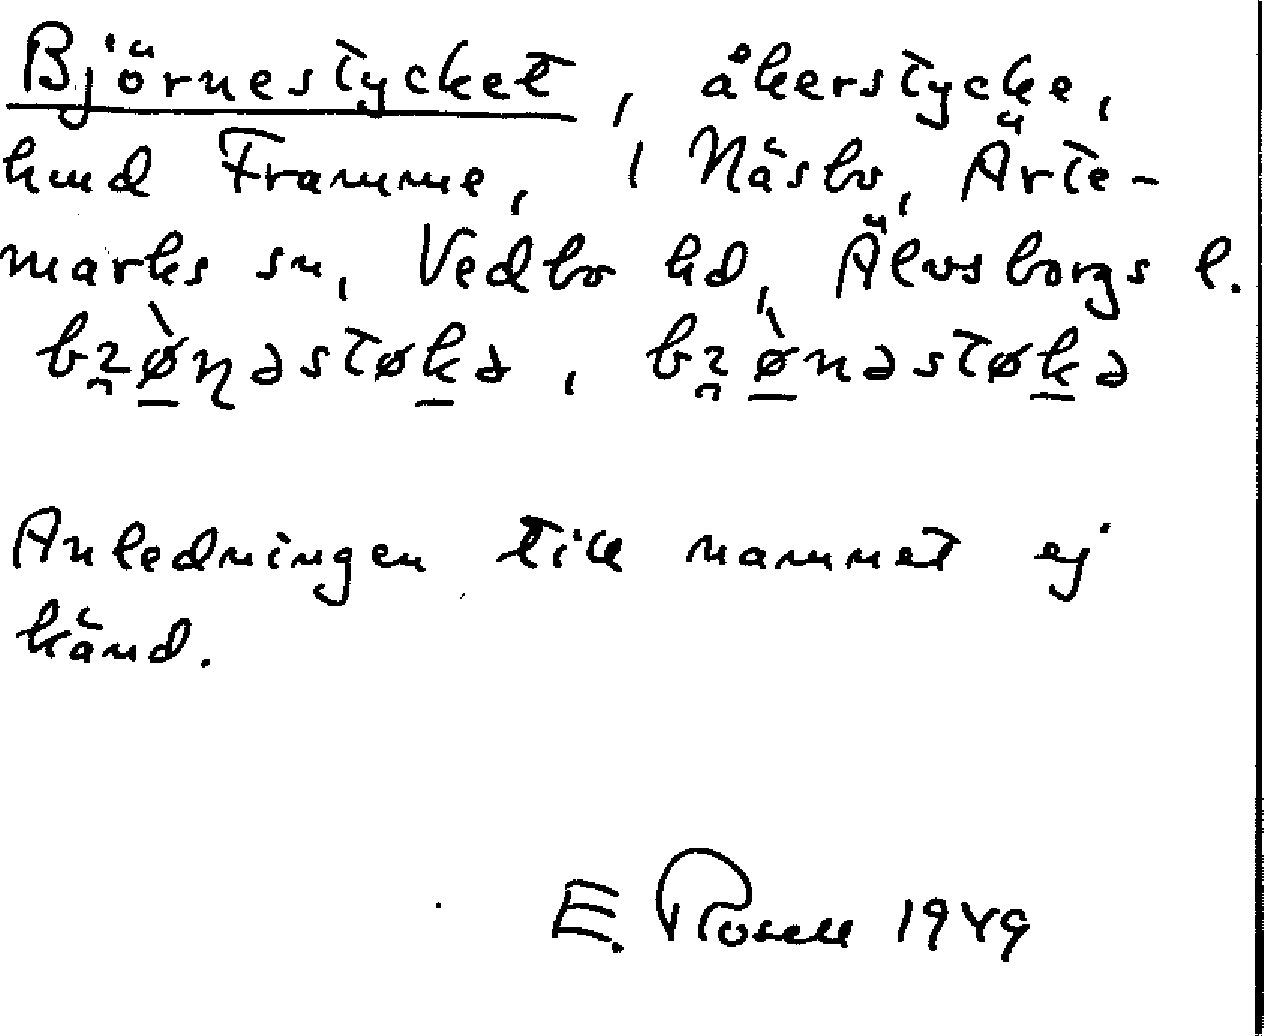 Björnestycket, åkerstycke,
hmd Framme, i Näsbo, Ärte-
marks sn, Vedbo hd, Älvsborgs l.
Anledningen till namnet ej
känd.
E. Rosell 1949